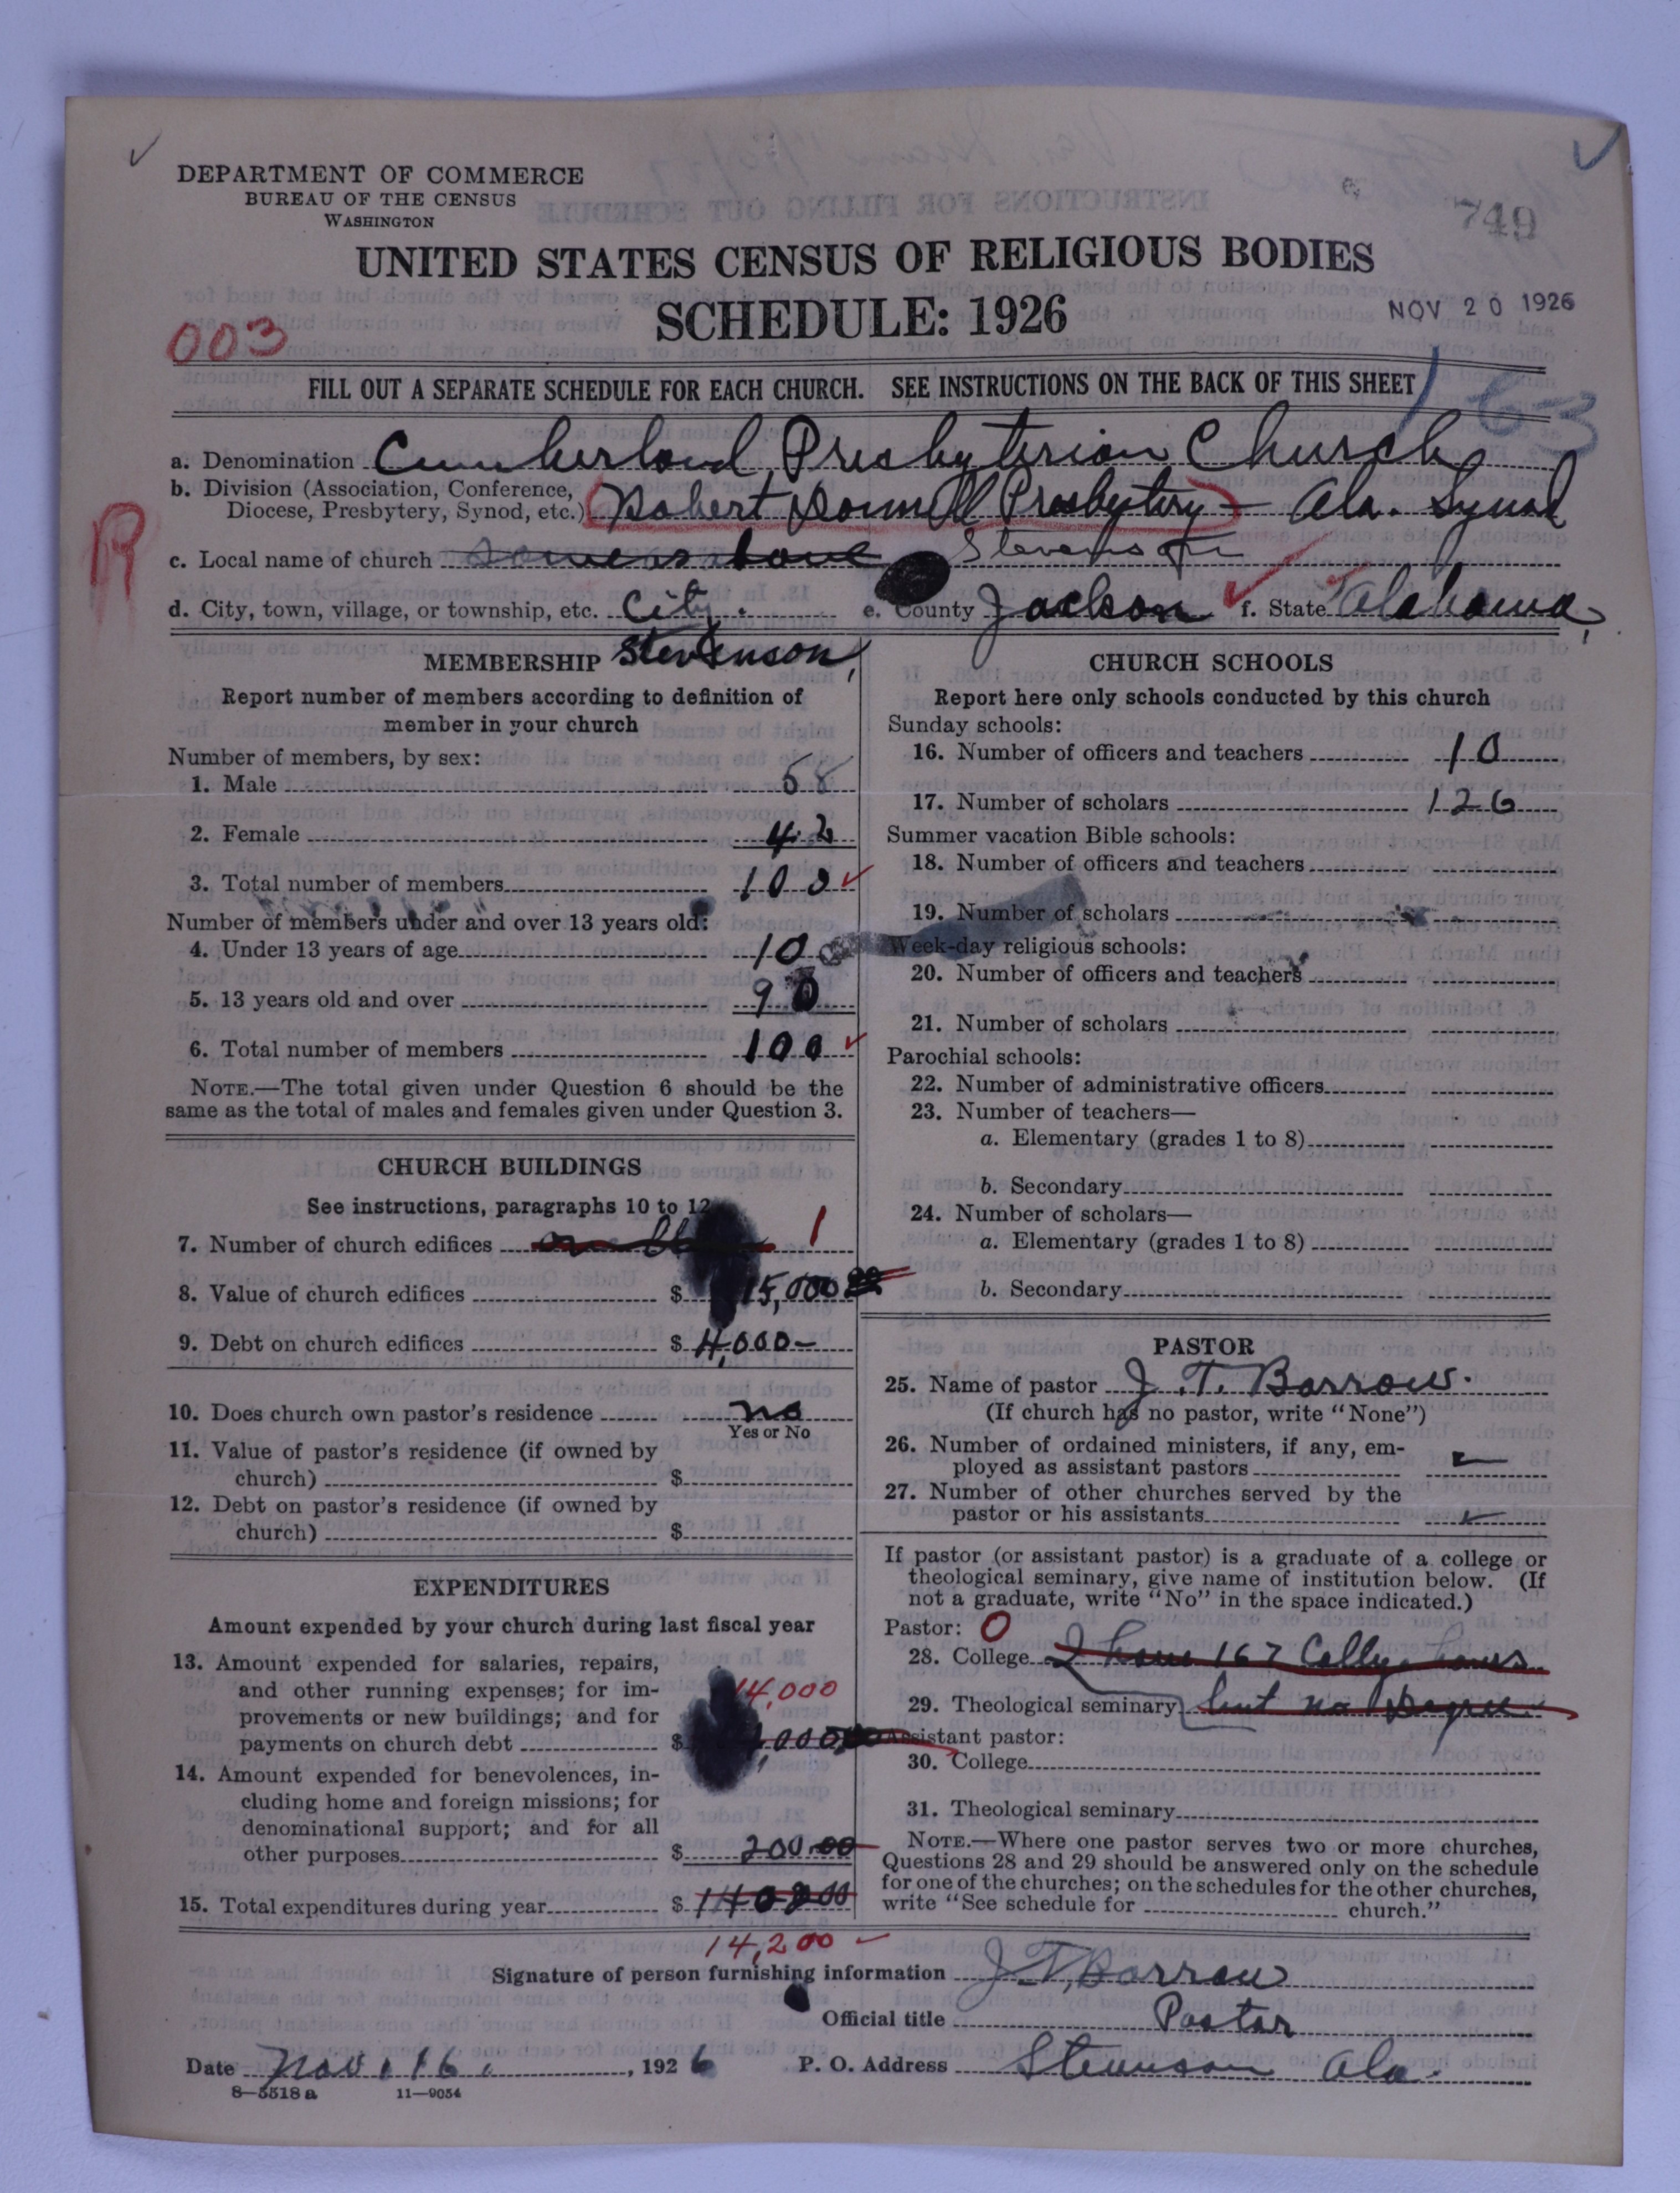 DEPARTMENT OF COMMERCE
BUREAU OF THE CENSUS
WASHINGTON
749
UNITED STATES CENSUS OF RELIGIOUS BODIES
SCHEDULE: 1926
NOV 20 1926
003
FILL OUT A SEPARATE SCHEDULE FOR EACH CHURCH. SEE INSTRUCTIONS ON THE BACK OF THIS SHEET
163
a. Denomination Cumberland Presbyterian Church
b. Division (Association, Conference,
Diocese, Presbytery, Synod, etc.) Robert Donnell Presbytery - Ala. Synod
R
c. Local name of church Stevenson
d. City, town, village, or township, etc. City. e. County Jackson f. State Alabama,
Stevenson,
MEMBERSHIP
Report number of members according to definition of
member in your church
Number of members, by sex:
1. Male 58
2. Female 42
3. Total number of members 100
Number of members under and over 13 years old:
4. Under 13 years of age 10
5. 13 years old and over 90
6. Total number of members 100
NOTE.—The total given under Question 6 should be the
same as the total of males and females given under Question 3.
CHURCH BUILDINGS
See instructions, paragraphs 10 to 12
7. Number of church edifices 1
8. Value of church edifices $ 15,000
9. Debt on church edifices $ 4,000-
10. Does church own pastor's residence no
Yes or No
11. Value of pastor's residence (if owned by
church) $
12. Debt on pastor's residence (if owned by
church) $
EXPENDITURES
Amount expended by your church during last fiscal year
13. Amount expended for salaries, repairs,
and other running expenses; for im- 14,000
provements or new buildings; and for
payments on church debt $
14. Amount expended for benevolences, in-
cluding home and foreign missions; for
denominational support; and for all
other purposes $ 200.00
15. Total expenditures during year $
14,200
CHURCH SCHOOLS
Report here only schools conducted by this church
Sunday schools:
16. Number of officers and teachers 10
17. Number of scholars 126
Summer vacation Bible schools:
18. Number of officers and teachers
19. Number of scholars
Week-day religious schools:
20. Number of officers and teachers
21. Number of scholars
Parochial schools:
22. Number of administrative officers
23. Number of teachers—
a. Elementary (grades 1 to 8)
b. Secondary
24. Number of scholars—
a. Elementary (grades 1 to 8)
b. Secondary
PASTOR
25. Name of pastor J. T. Barrow.
(If church has no pastor, write "None")
26. Number of ordained ministers, if any, em-
ployed as assistant pastors
27. Number of other churches served by the
pastor or his assistants
If pastor (or assistant pastor) is a graduate of a college or
theological seminary, give name of institution below. (If
not a graduate, write "No" in the space indicated.)
Pastor: O
28. College I have 167 Colly. hours
29. Theological seminary but no Degree.
Assistant pastor:
30. College
31. Theological seminary
NOTE.—Where one pastor serves two or more churches,
Questions 28 and 29 should be answered only on the schedule
for one of the churches; on the schedules for the other churches,
write "See schedule for church."
Signature of person furnishing information J. T. Barrow
Official title Pastor
Date Nov. 16. , 1926 P. O. Address Stevenson Ala.
8-5518a 11-9054